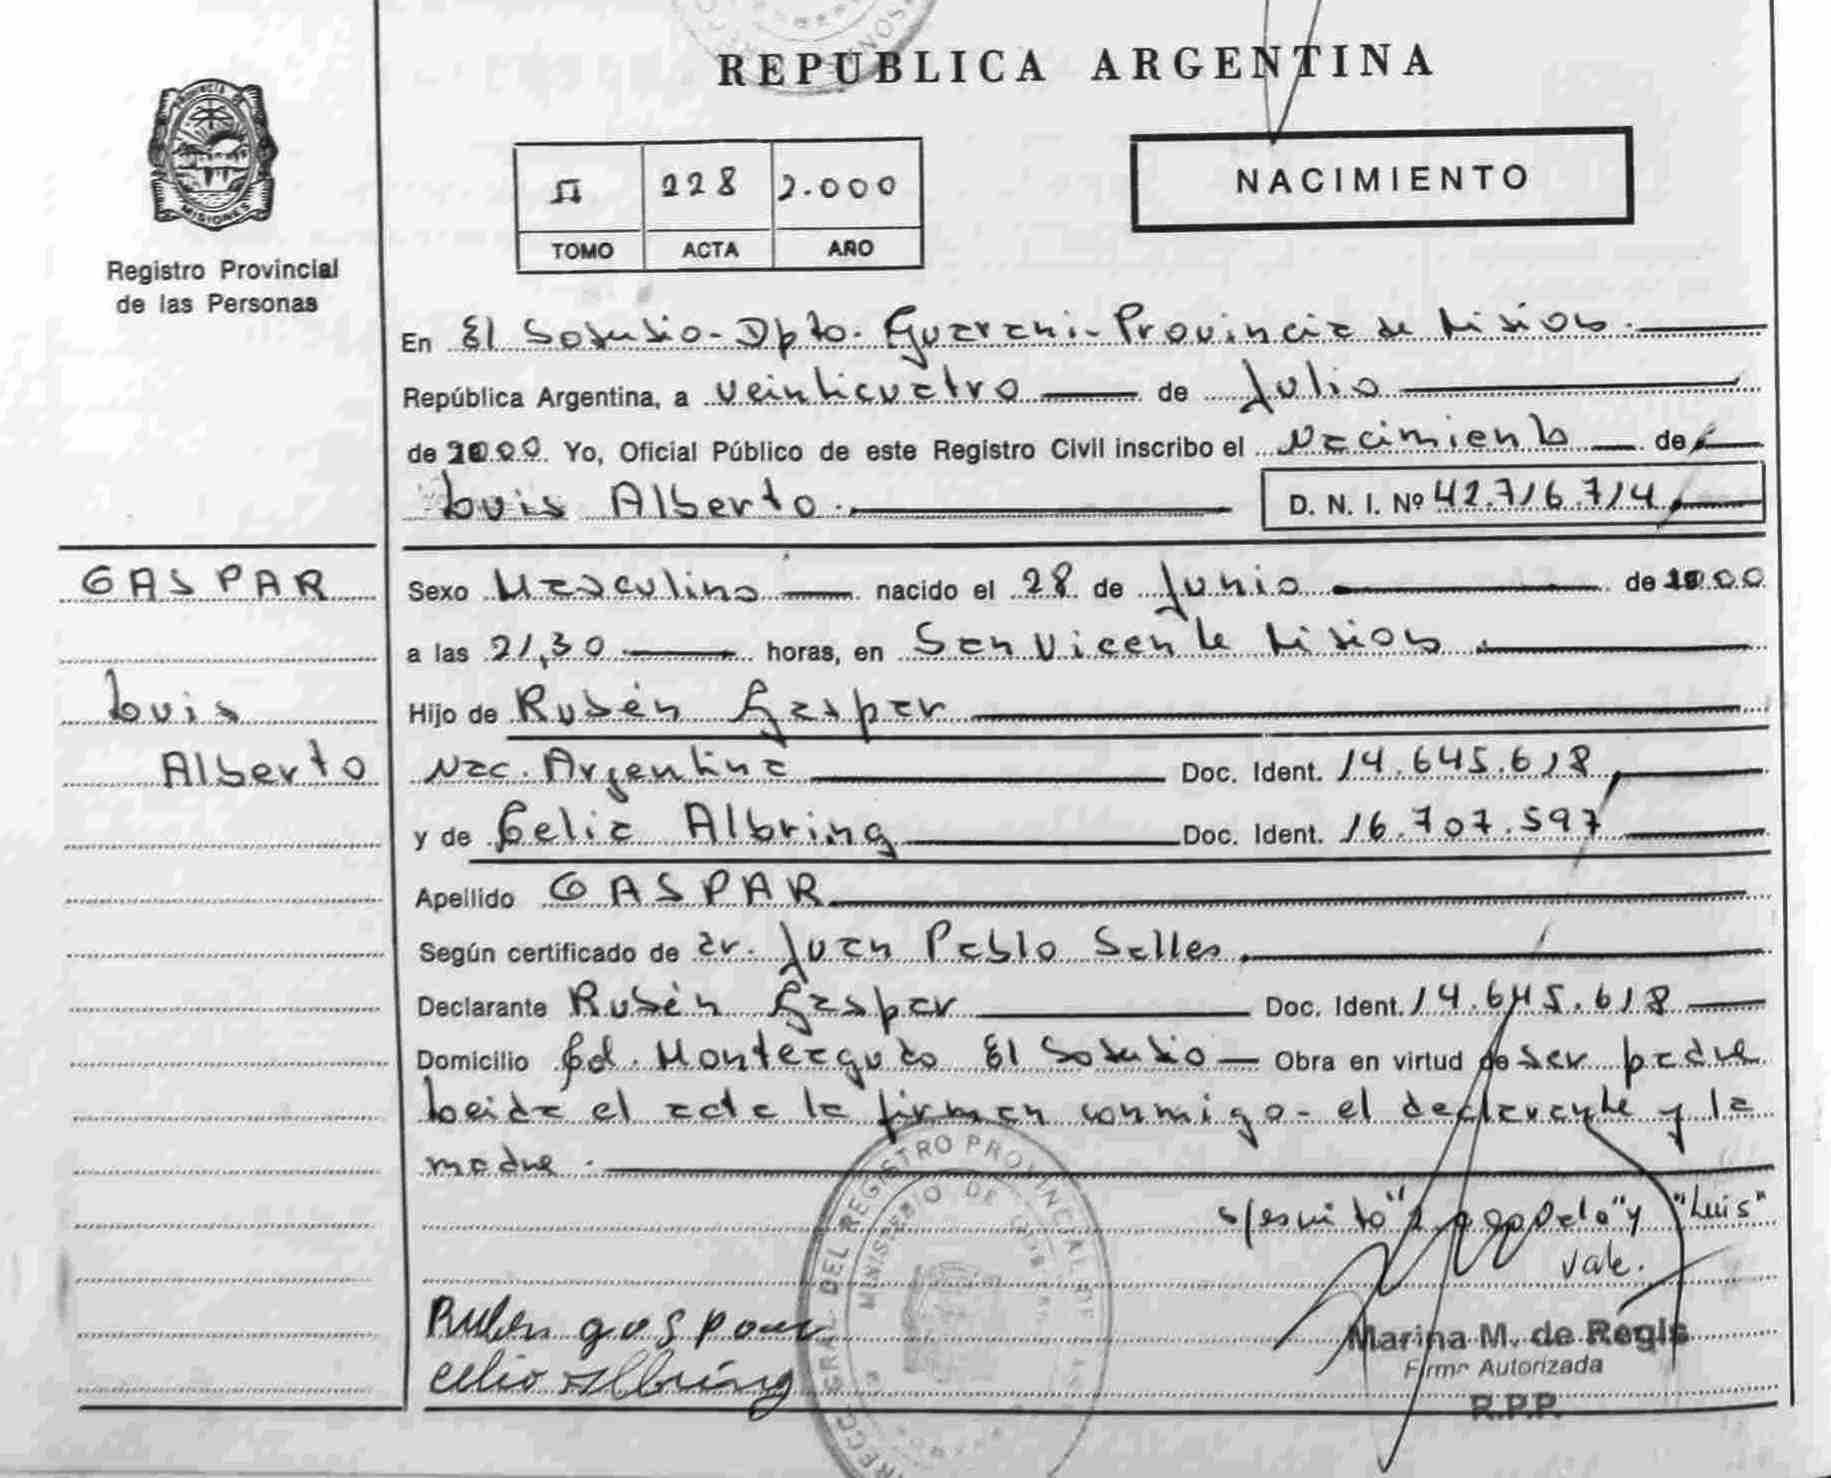 REPUBLICA ARGENTINA
PROVINCIA DE
MISIONES
Registro Provincial
de las Personas
II 228 2.000
TOMO ACTA AÑO
NACIMIENTO
En El Soberbio - Dpto. Guarani - Provincia de Misiones.
República Argentina, a veinticuatro de Julio
de 2000 Yo, Oficial Público de este Registro Civil inscribo el Nacimiento de
Luis Alberto. D. N. I. Nº 42.716.714
GASPAR
Luis
Alberto
Sexo Masculino nacido el 28 de Junio de 2000
a las 21,30 horas, en San Vicente Misiones.
Hijo de Rubén Gaspar
Nac. Argentina Doc. Ident. 14.645.618
y de Celia Albring Doc. Ident. 16.707.597
Apellido GASPAR
Según certificado de Dr. Juan Pablo Salles
Declarante Rubén Gaspar Doc. Ident. 14.645.618
Domicilio Cd. Monteagudo El Soberbio Obra en virtud de ser padre
Leida el acta la firman conmigo - el declarante y la
madre.
s/escrito y "Luis"
vale.
Ruben gaspar
celia Albring
DEL REGISTRO PROVINCIAL DE
MINISTERIO DE
Marina M. de Regis
Firma Autorizada
R.P.P.